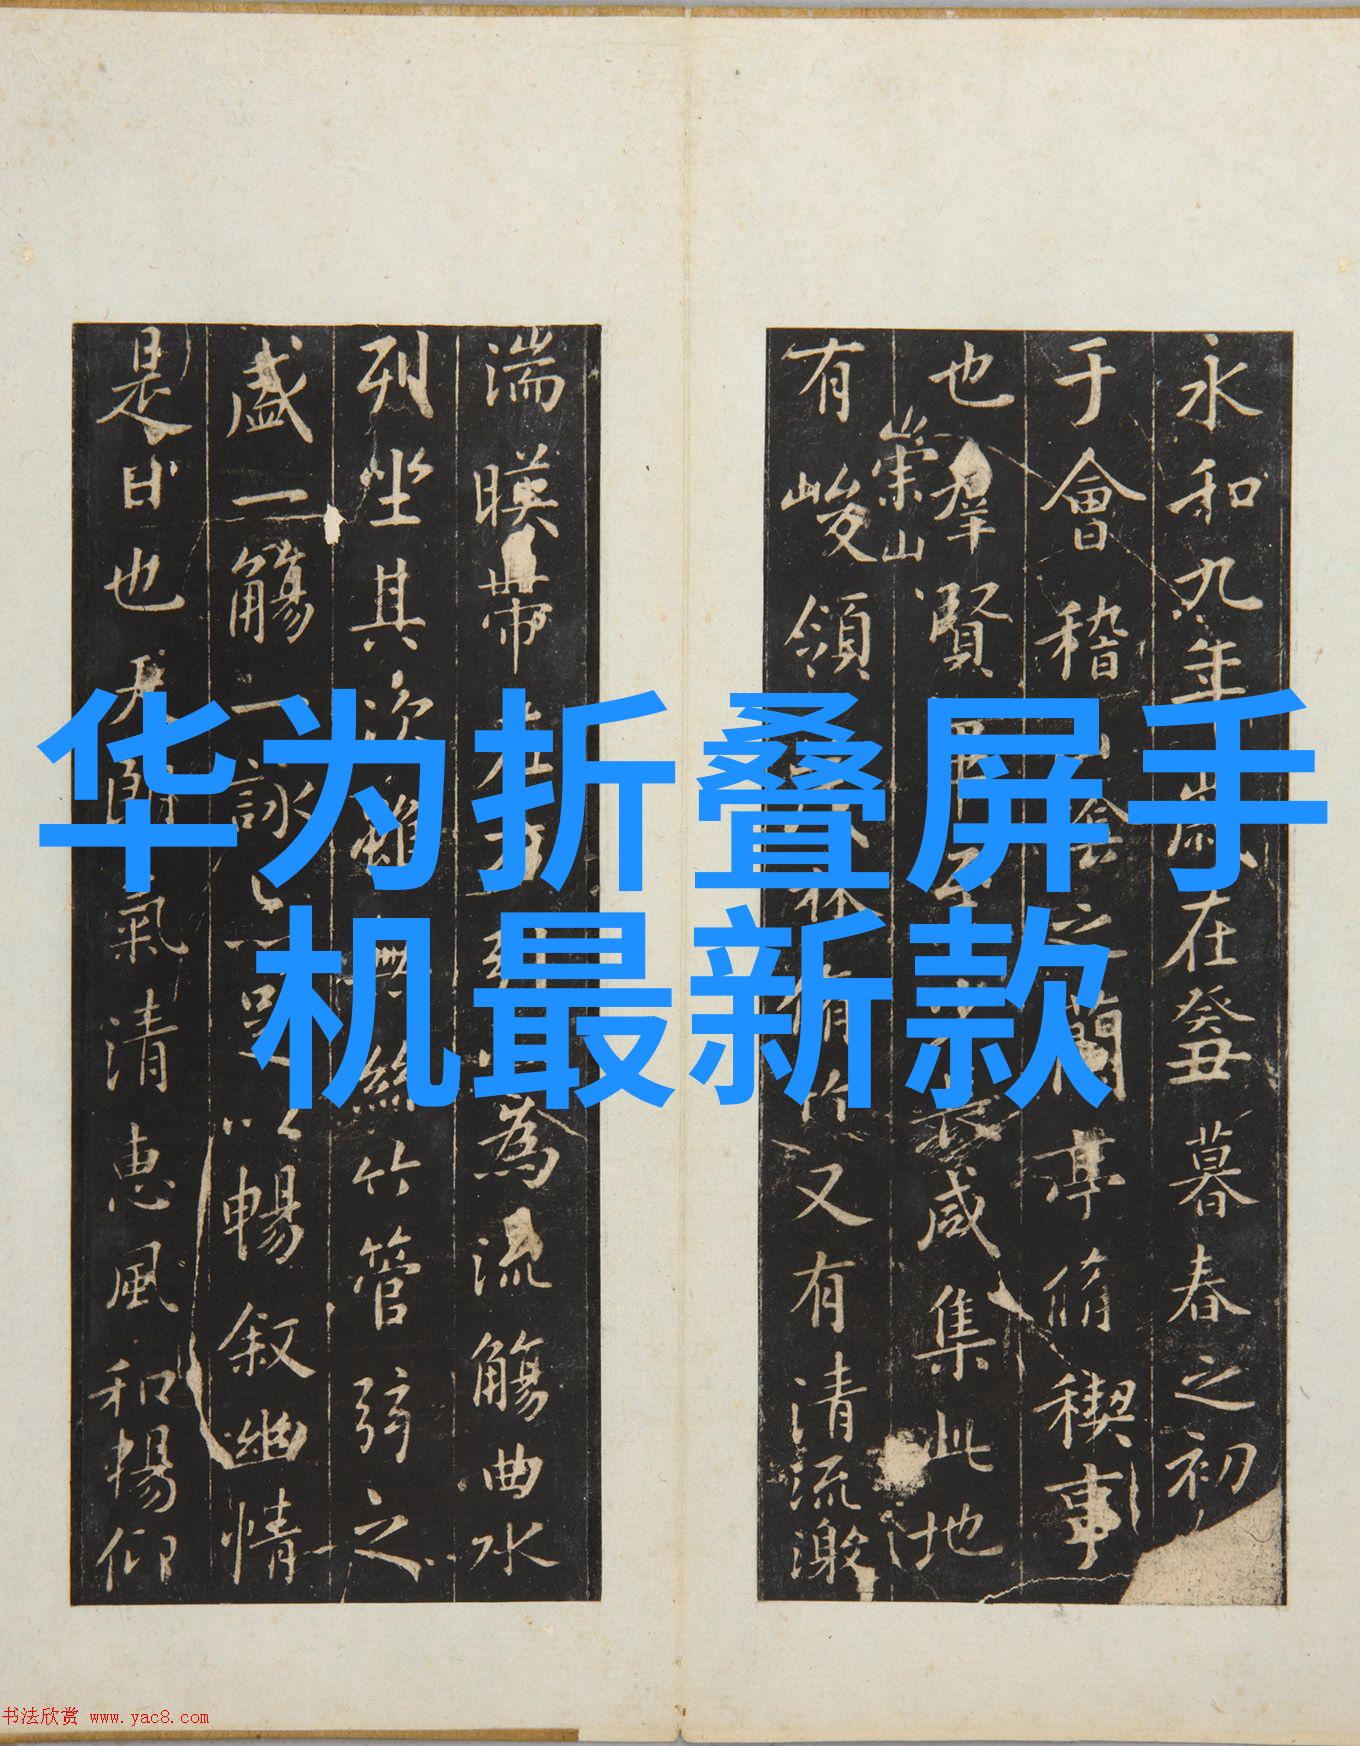 永和九年歲在癸丑暮春之初
于會稽山陰之蘭亭脩稧事
也羣賢畢至長咸集此地
有崇山峻領林脩竹又有清流激
湍暎帶左右引以為流觴曲水
列坐其次雖無絲竹管弦之
盛一觴一詠亦足以暢叙幽情
是日也天朗氣清惠風和暢仰
华为折叠屏手
机最新款
书法欣赏 www.yac8.com